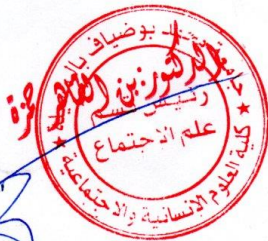 جامعة محمد بوضياف
كلية العلوم الإنسانية والاجتماعية
رئيس قسم
علم الاجتماع
الدكتور: بن
حمزة